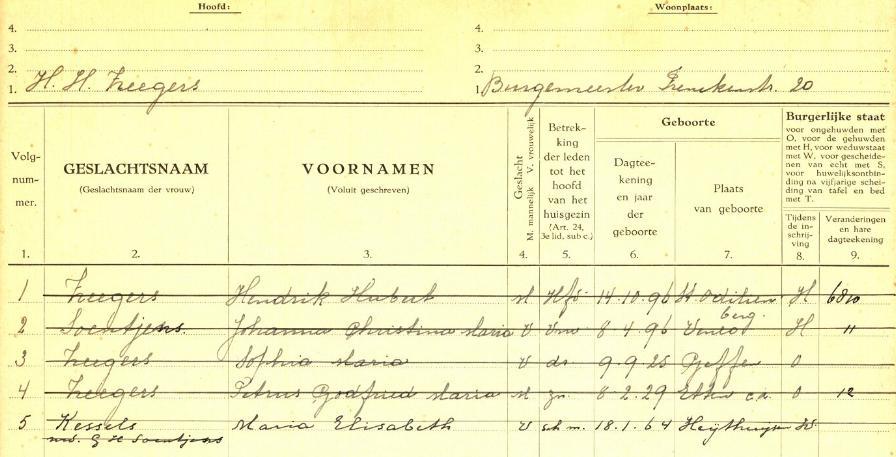 Hoofd:
Woonplaats:
4.
4.
3.
3.
2.
2.
1. H. H. Zeegers
1. Burgemeester 20
Burgerlijke staat
voor ongehuwden met
O, voor de gehuwden
met H, voor weduwstaat
met W, voor gescheide-
nen van echt met S,
voor huwelijksontbin-
ding na vijfjarige schei-
ding van tafel en bed
met T.
Volg-
num-
mer.
GESLACHTSNAAM
(Geslachtsnaam der vrouw)
VOORNAMEN
(Voluit geschreven)
Geslacht
M. mannelijk V. vrouwelijk
Betrek-
king
der leden
tot het
hoofd
van het
huisgezin
(Art. 24,
3e lid, sub c.)
Geboorte
Dagtee-
kening
en jaar
der
geboorte
Plaats
van geboorte
Tijdens
de in-
schrij-
ving
Veranderingen
en hare
dagteekening
1. 2. 3. 4. 5. 6. 7. 8. 9.
1 Zeegers Hendrik Hubert M Hfd 14.10.96 St Odiliën H
berg.
2 Soentjens. Johanna Christina Maria V vrw 8.4.96 Venlo H "
3 Zeegers Sophia Maria V dr 9.9.25 Geffen O
4 Zeegers Petrus Godfried Maria M zn 8.2.29 Etten c.a. O
5 Kessels Maria Elisabeth V sch m. 18.1.64 Heijthuijsen W.
wed. G H Soentjens